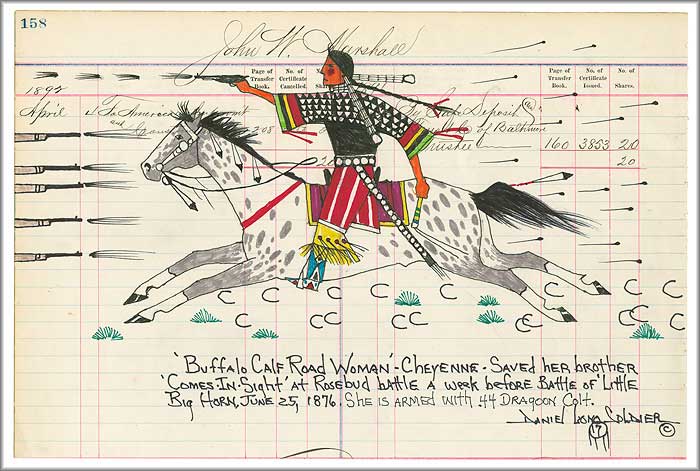 158
John W. Marshall
Page of Transfer Book.
No. of Certificate Cancelled.
No. of
Page of Transfer Book.
No. of Certificate Issued.
No. of Shares.
1892
April
and
208
of Baltimore
160 3853 20
20
'Buffalo Calf Road Woman' - Cheyenne - Saved her brother
'Comes-In-Sight' at Rosebud battle a week before Battle of Little
Big Horn, June 25, 1876. She is armed with .44 Dragoon Colt.
Daniel Long Soldier ©
17